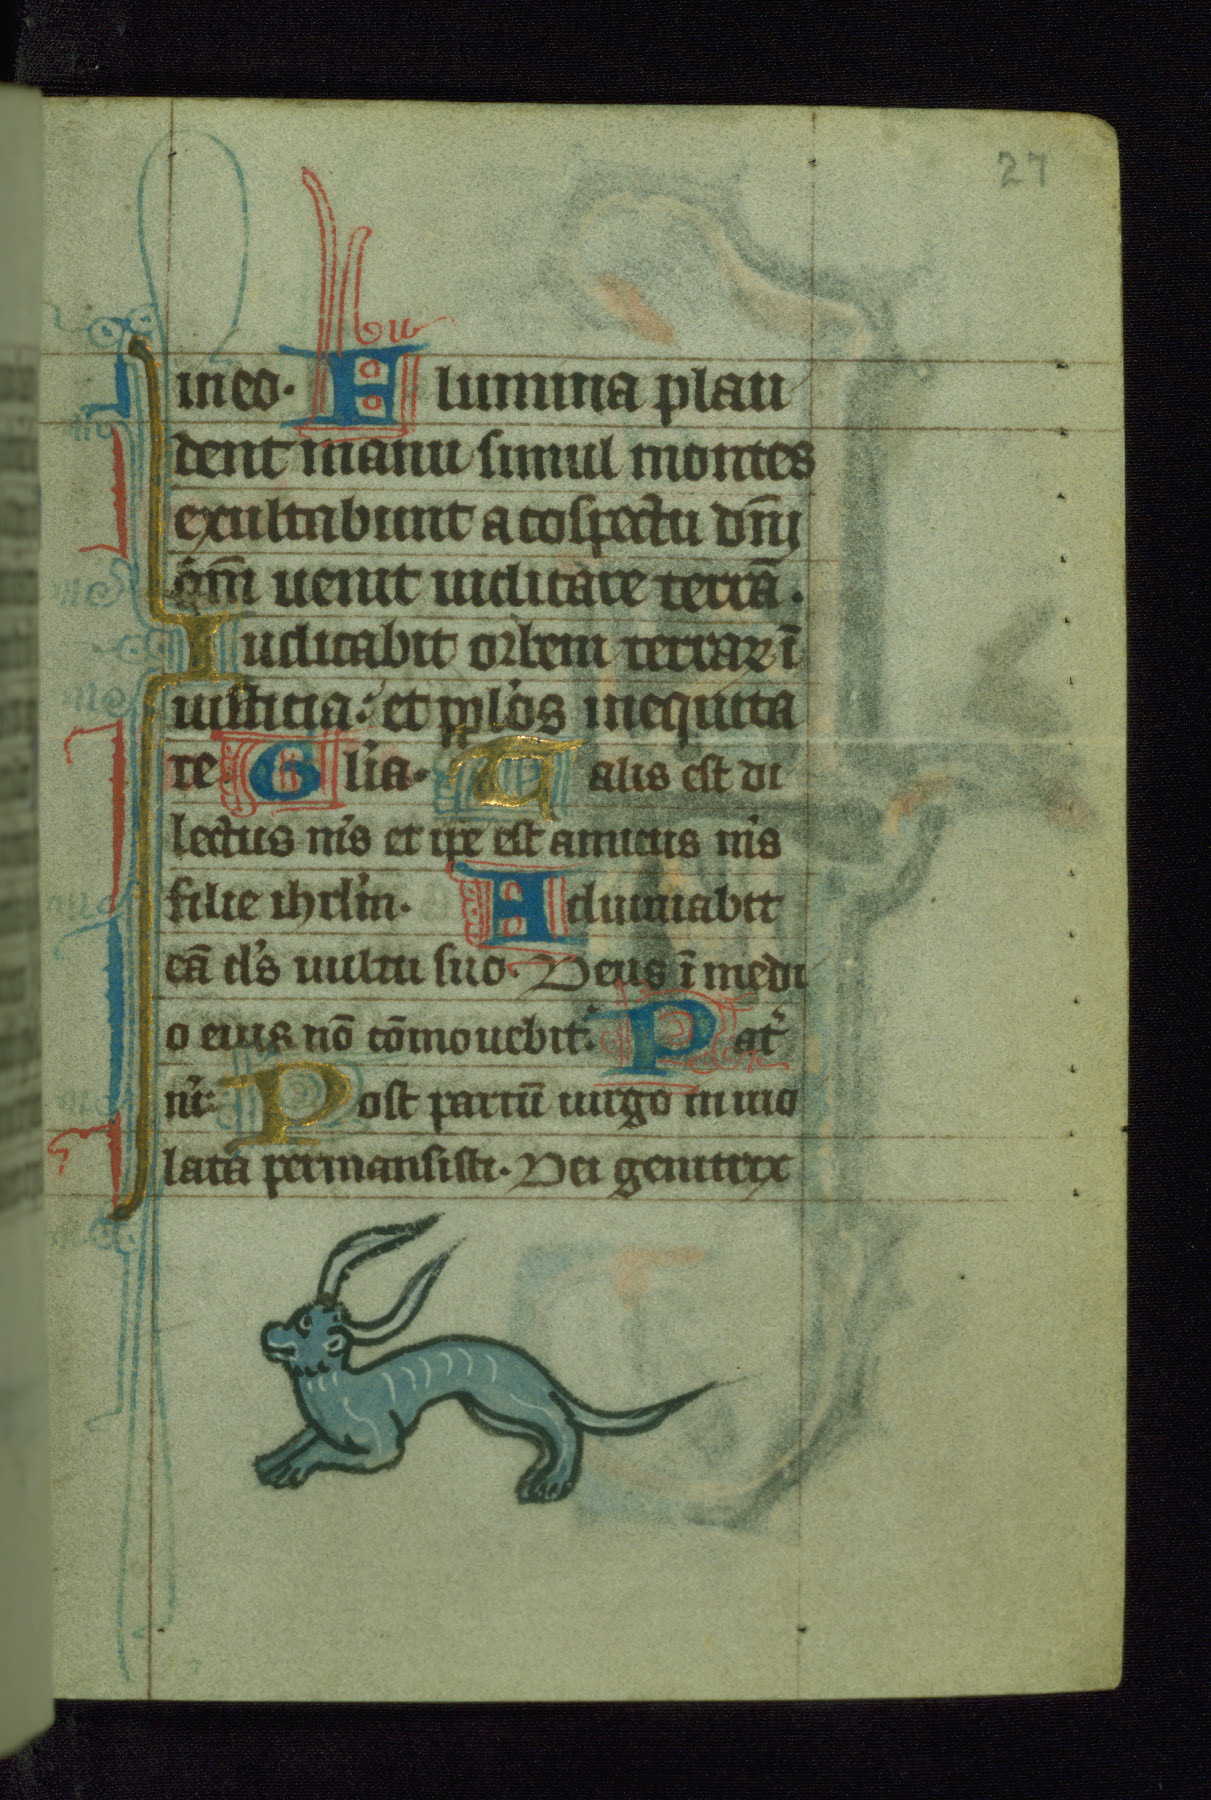 27
in eo. Flumina plau
dent manu simul montes
exultabunt a cōspectu dn̄i
qm̄ uenit iudicare terrā.
Iudicabit orbem terrarꝝ ī
iusticia: et ppl'os in equita
te Gl'ia. Talis est di
lectus nr̄s et ip̄e est amicus nr̄s
filie ihrl'm. Adiuuabit
eā d's uultu suo. Deus ī medi
o eius nō cōmouebit᷑. Pat᷑
nr̄. Post partū uirgo inuio
lata permansisti. Dei genitrix